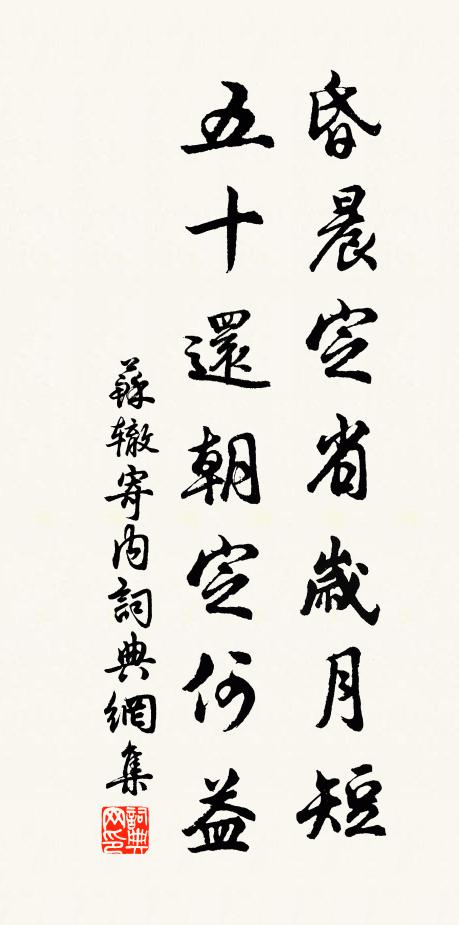 昏晨定省歲月短
五十還朝定何益
蘇轍寄内詞典網集
詞典网印